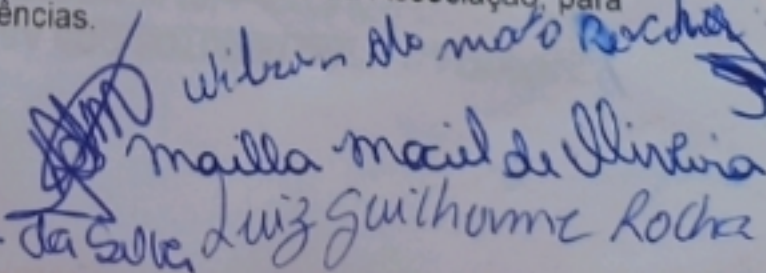 ências. para
Wilson do mato Rocha
mailla maciel de Oliveira
da Silva Luiz Guilherme Rocha